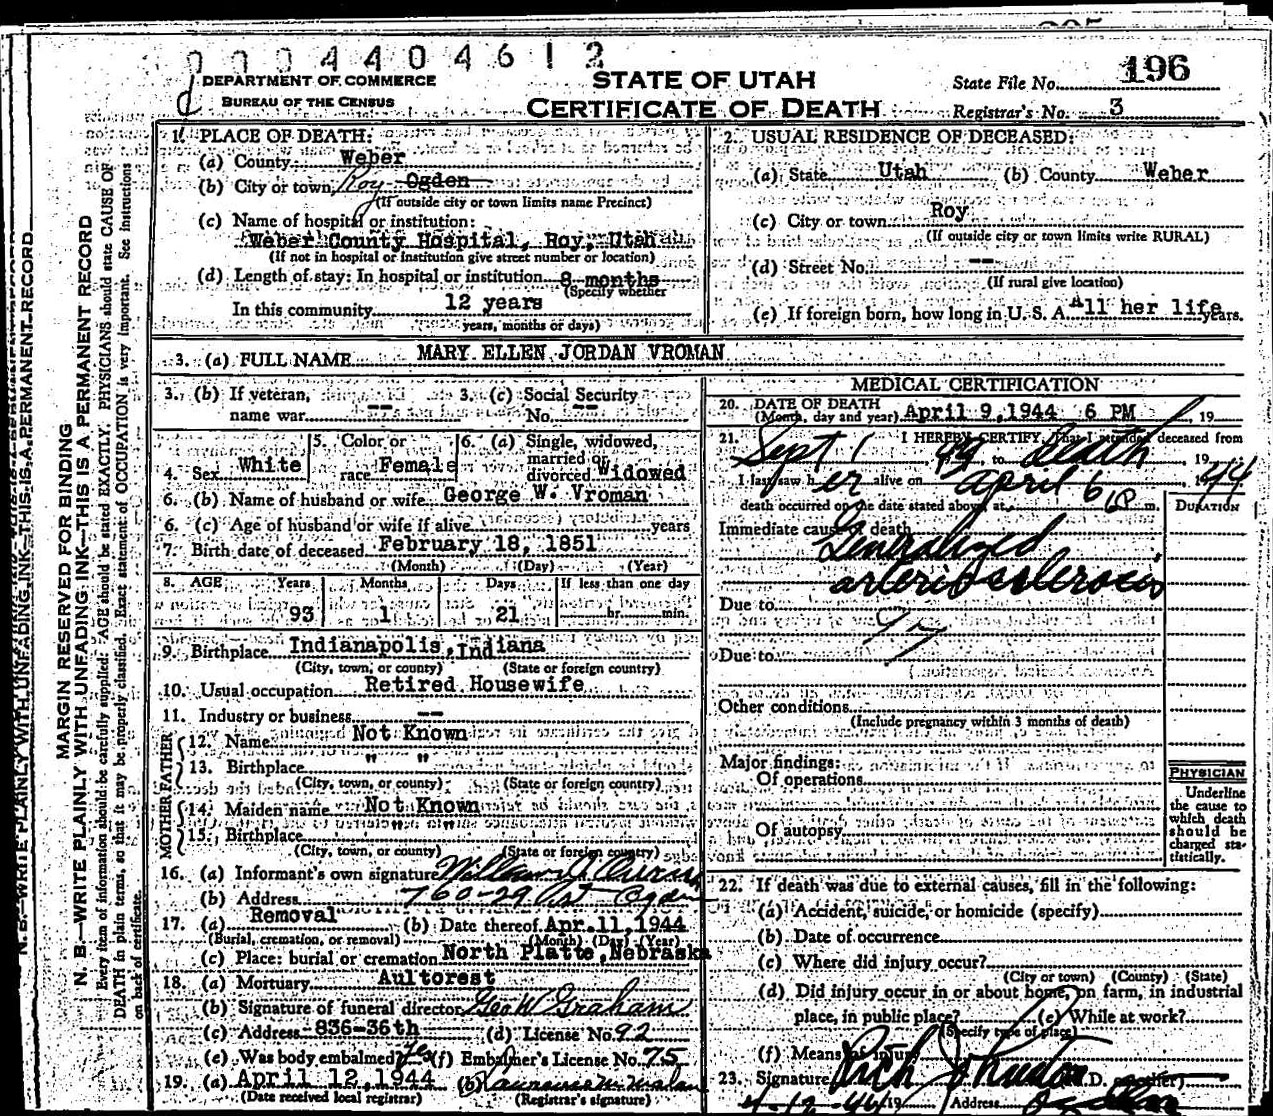 0004404612
DEPARTMENT OF COMMERCE
BUREAU OF THE CENSUS
STATE OF UTAH
CERTIFICATE OF DEATH
State File No. 196
Registrar's No. 3
MARGIN RESERVED FOR BINDING
N. B.—WRITE PLAINLY WITH UNFADING INK—THIS IS A PERMANENT RECORD
Every item of information should be carefully supplied. AGE should be stated EXACTLY. PHYSICIANS should state CAUSE OF
DEATH in plain terms, so that it may be properly classified. Exact statement of OCCUPATION is very important. See instructions
on back of certificate.
1. PLACE OF DEATH:
(a) County Weber
(b) City or town Roy Ogden
(If outside city or town limits name Precinct)
(c) Name of hospital or institution:
Weber County Hospital, Roy, Utah
(If not in hospital or institution give street number or location)
(d) Length of stay: In hospital or institution 8 months
(Specify whether
In this community 12 years
years, months or days)
2. USUAL RESIDENCE OF DECEASED:
(a) State Utah (b) County Weber
(c) City or town Roy
(If outside city or town limits write RURAL)
(d) Street No. --
(If rural give location)
(e) If foreign born, how long in U. S. A. All her life years.
3. (a) FULL NAME MARY ELLEN JORDAN VROMAN
3. (b) If veteran, name war --
3. (c) Social Security No. --
4. Sex White
5. Color or race Female
6. (a) Single, widowed, married or divorced Widowed
6. (b) Name of husband or wife George W. Vroman
6. (c) Age of husband or wife if alive years
7. Birth date of deceased February 18, 1851
(Month) (Day) (Year)
8. AGE Years Months Days If less than one day
93 1 21 hr. min.
9. Birthplace Indianapolis, Indiana
(City, town, or county) (State or foreign country)
10. Usual occupation Retired Housewife
11. Industry or business --
FATHER
12. Name Not Known
13. Birthplace " "
(City, town, or county) (State or foreign country)
MOTHER
14. Maiden name Not Known
15. Birthplace " "
(City, town, or county) (State or foreign country)
16. (a) Informant's own signature William J.
(b) Address 760-29 St Ogden
17. (a) Removal (b) Date thereof Apr. 11, 1944
(Burial, cremation, or removal) (Month) (Day) (Year)
(c) Place: burial or cremation North Platte, Nebraska
18. (a) Mortuary Aultorest
(b) Signature of funeral director Geo W Graham
(c) Address 836-36th (d) License No. 92
(e) Was body embalmed? yes (f) Embalmer's License No. 75
19. (a) April 12, 1944 (b)
(Date received local registrar) (Registrar's signature)
MEDICAL CERTIFICATION
20. DATE OF DEATH
(Month, day and year) April 9, 1944 6 PM, 19
21. I HEREBY CERTIFY, That I attended deceased from
Sept 1 to Death, 1944
I last saw her alive on April 6, 19
death occurred on the date stated above, at 6 P m.
DURATION
Immediate cause of death
Generalized
arteriosclerosis
Due to
97
Due to
Other conditions
(Include pregnancy within 3 months of death)
Major findings:
Of operations
Of autopsy
PHYSICIAN
Underline
the cause to
which death
should be
charged sta-
tistically.
22. If death was due to external causes, fill in the following:
(a) Accident, suicide, or homicide (specify)
(b) Date of occurrence
(c) Where did injury occur?
(City or town) (County) (State)
(d) Did injury occur in or about home, on farm, in industrial
place, in public place? (e) While at work?
(Specify type of place)
(f) Means of injury
23. Signature Rich Johnston M.D.
4-12-44 19 Address Ogden